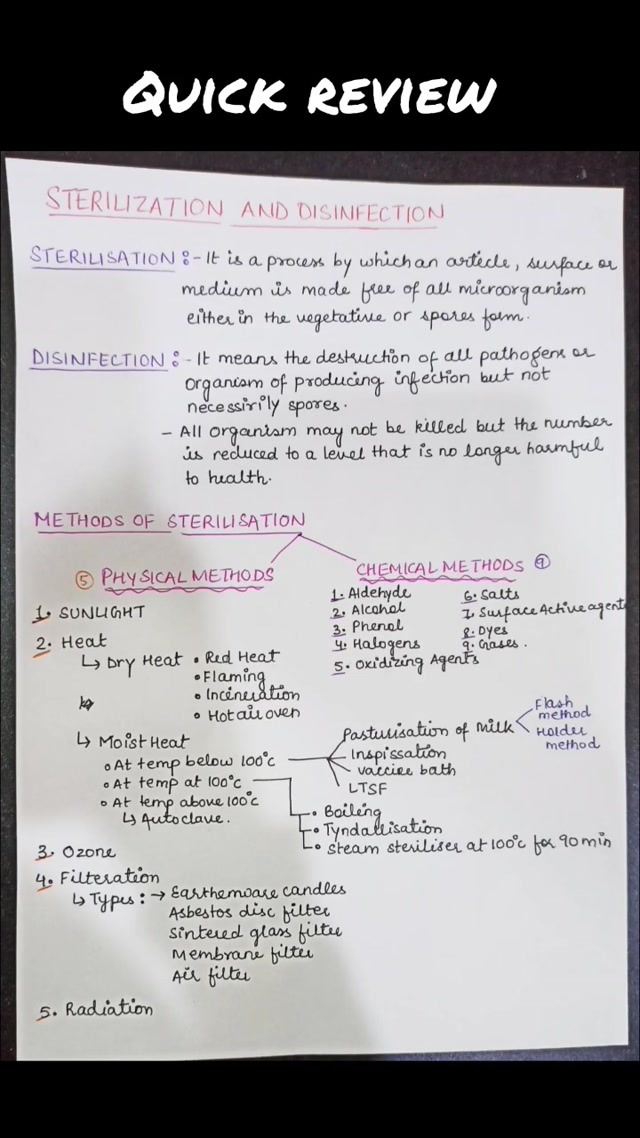 QUICK REVIEW
STERILIZATION AND DISINFECTION
STERILISATION :- It is a process by which an article, surface or
medium is made free of all microorganism
either in the vegetative or spores form.
DISINFECTION :- It means the destruction of all pathogens or
organism of producing infection but not
necessirily spores.
- All organism may not be killed but the number
is reduced to a level that is no longer harmful
to health.
METHODS OF STERILISATION
⑤ PHYSICAL METHODS
1. SUNLIGHT
2. Heat
↳ Dry Heat • Red Heat
• Flaming
• Incineration
• Hot air oven
↳ Moist Heat
o At temp below 100°c
Pasturisation of Milk
Flash method
Holder method
Inspissation
vaccine bath
LTSF
o At temp at 100°c
• Boiling
• Tyndallisation
• steam steriliser at 100°c for 90 min
o At temp above 100°c
↳ Autoclave.
3. Ozone
4. Filteration
↳ Types : → Earthernware candles
Asbestos disc filter
Sintered glass filter
Membrane filter
Air filter
5. Radiation
CHEMICAL METHODS ⑨
1. Aldehyde
2. Alcohol
3. Phenol
4. Halogens
5. Oxidizing Agents
6. Salts
7. Surface Active agent
8. Dyes
9. Gases.